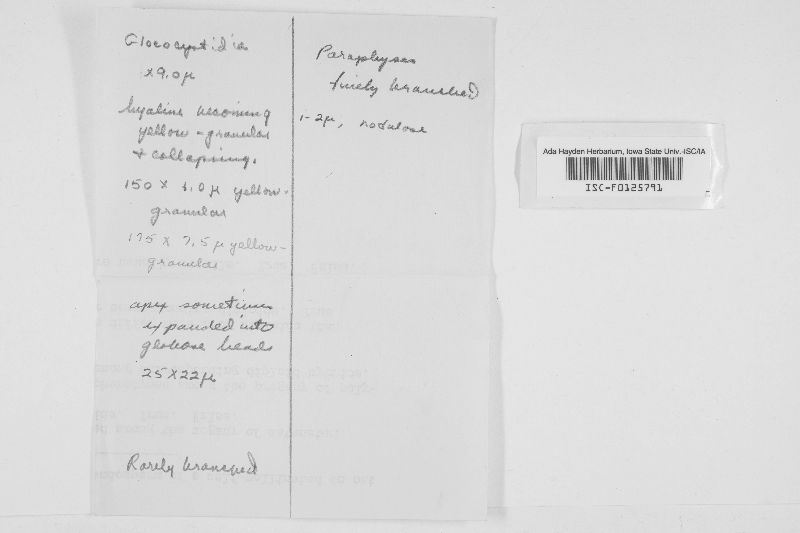 Gloeocystidia
x 9.0 µ
hyaline becoming
yellow-granular
+ collapsing.
150 x 6.0 µ yellow-
granular
175 x 7.5 µ yellow-
granular
apex sometimes
expanded into
globose heads
25 x 22 µ
Rarely branched
Paraphyses
finely branched
1-2µ, nodulose
Ada Hayden Herbarium, Iowa State Univ.-ISC/IA
ISC-F0125791